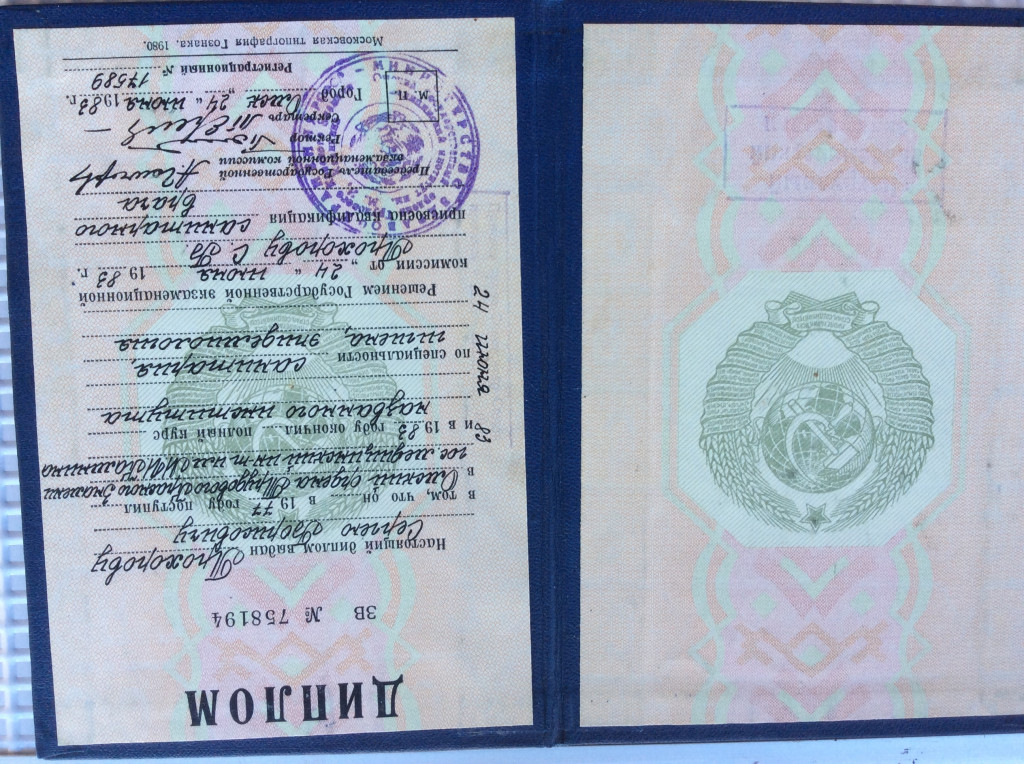 ДИПЛОМ
ЗВ № 758194
Настоящий диплом выдан Прохорову
Сергею Борисовичу
в том, что он в 1977 году поступил
в Омский ордена Трудового Красного Знамени
гос. медицинский ин-т им. М.И. Калинина
и в 1983 году окончил полный курс
названного института
по специальности санитария,
гигиена, эпидемиология
24 июня 83
Решением Государственной экзаменационной
комиссии от „24" июня 1983 г.
Прохорову С. Б.
присвоена квалификация
санитарного
врача
Председатель Государственной
экзаменационной комиссии
Ректор
Секретарь
М. П.
Город Омск „24" июня 1983 г.
Регистрационный № 17589
Московская типография Гознака. 1980.